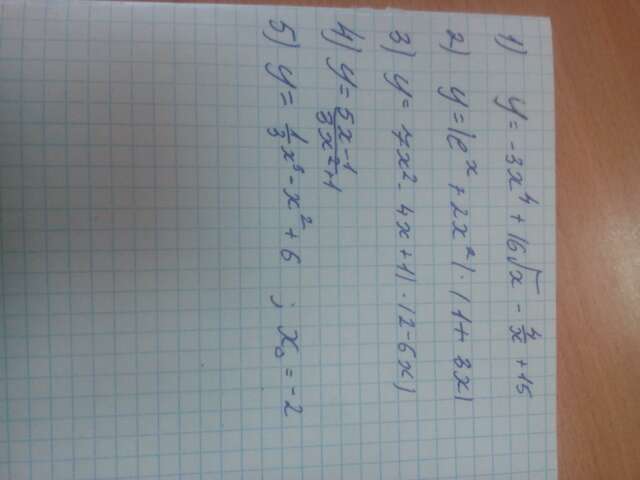 1) y = -3x⁴ + 16√x - 4/x + 15
2) y = (eˣ + 2x²) · (1 + 8x)
3) y = (7x² - 4x + 1) · (2 - 6x)
4) y = (5x - 1)/(3x² + 1)
5) y = 1/3 x³ - x² + 6 ; x₀ = -2